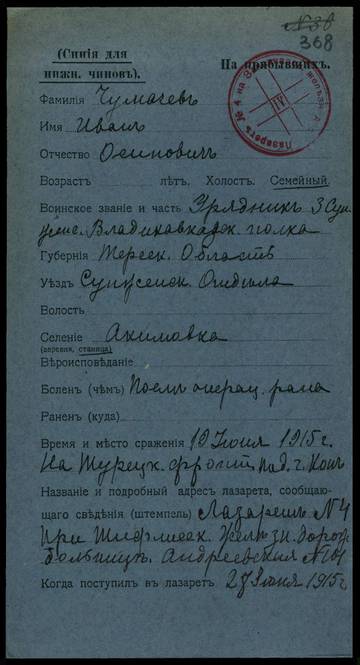 № 30
368
(Синія для
нижн. чиновъ).
На прибывшихъ.
Лазаретъ № 4 на
IV
Фамилія Чумачевъ
Имя Иванъ
Отчество Осиповичъ
Возрастъ лѣтъ. Холост. Семейный.
Воинское званіе и часть Урядникъ 3 Сун.
Владикавказск. полка
Губернія Терск. Область
Уѣздъ Сунженск. Отдѣла
Волость
Селеніе Акимовка
(деревня, станица)
Вѣроисповѣданіе
Боленъ (чѣмъ) Посл. операц. рана
Раненъ (куда)
Время и мѣсто сраженія 19 Іюня 1915 г.
На Турецк. фронт. под. г. Коп
Названіе и подробный адресъ лазарета, сообщаю-
щаго свѣдѣнія (штемпель) Лазаретъ № 4
при Тифлисск. Желѣзн. дорож.
больницѣ. Андреевская №
Когда поступилъ въ лазаретъ 27 Іюня 1915 г.